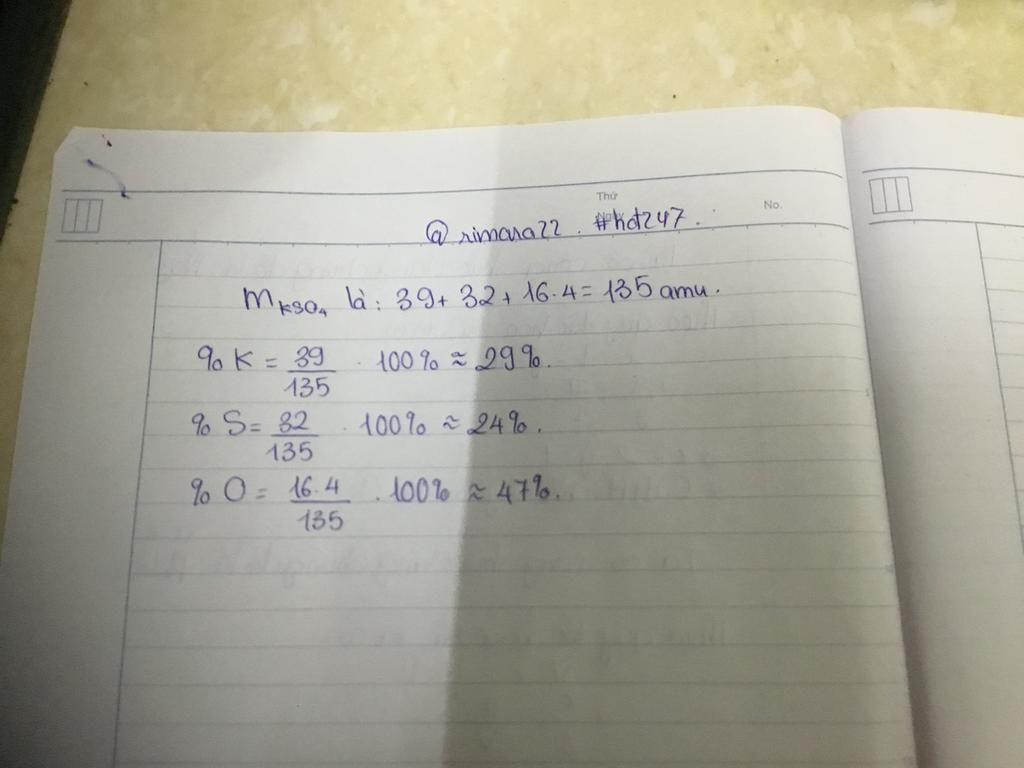 Thứ
No.
@rimara22. #hdt247.
m KSO4 là: 39 + 32 + 16.4 = 135 amu.
% K = 39/135 . 100% ≈ 29%.
% S = 32/135 . 100% ≈ 24%.
% O = 16.4/135 . 100% ≈ 47%.